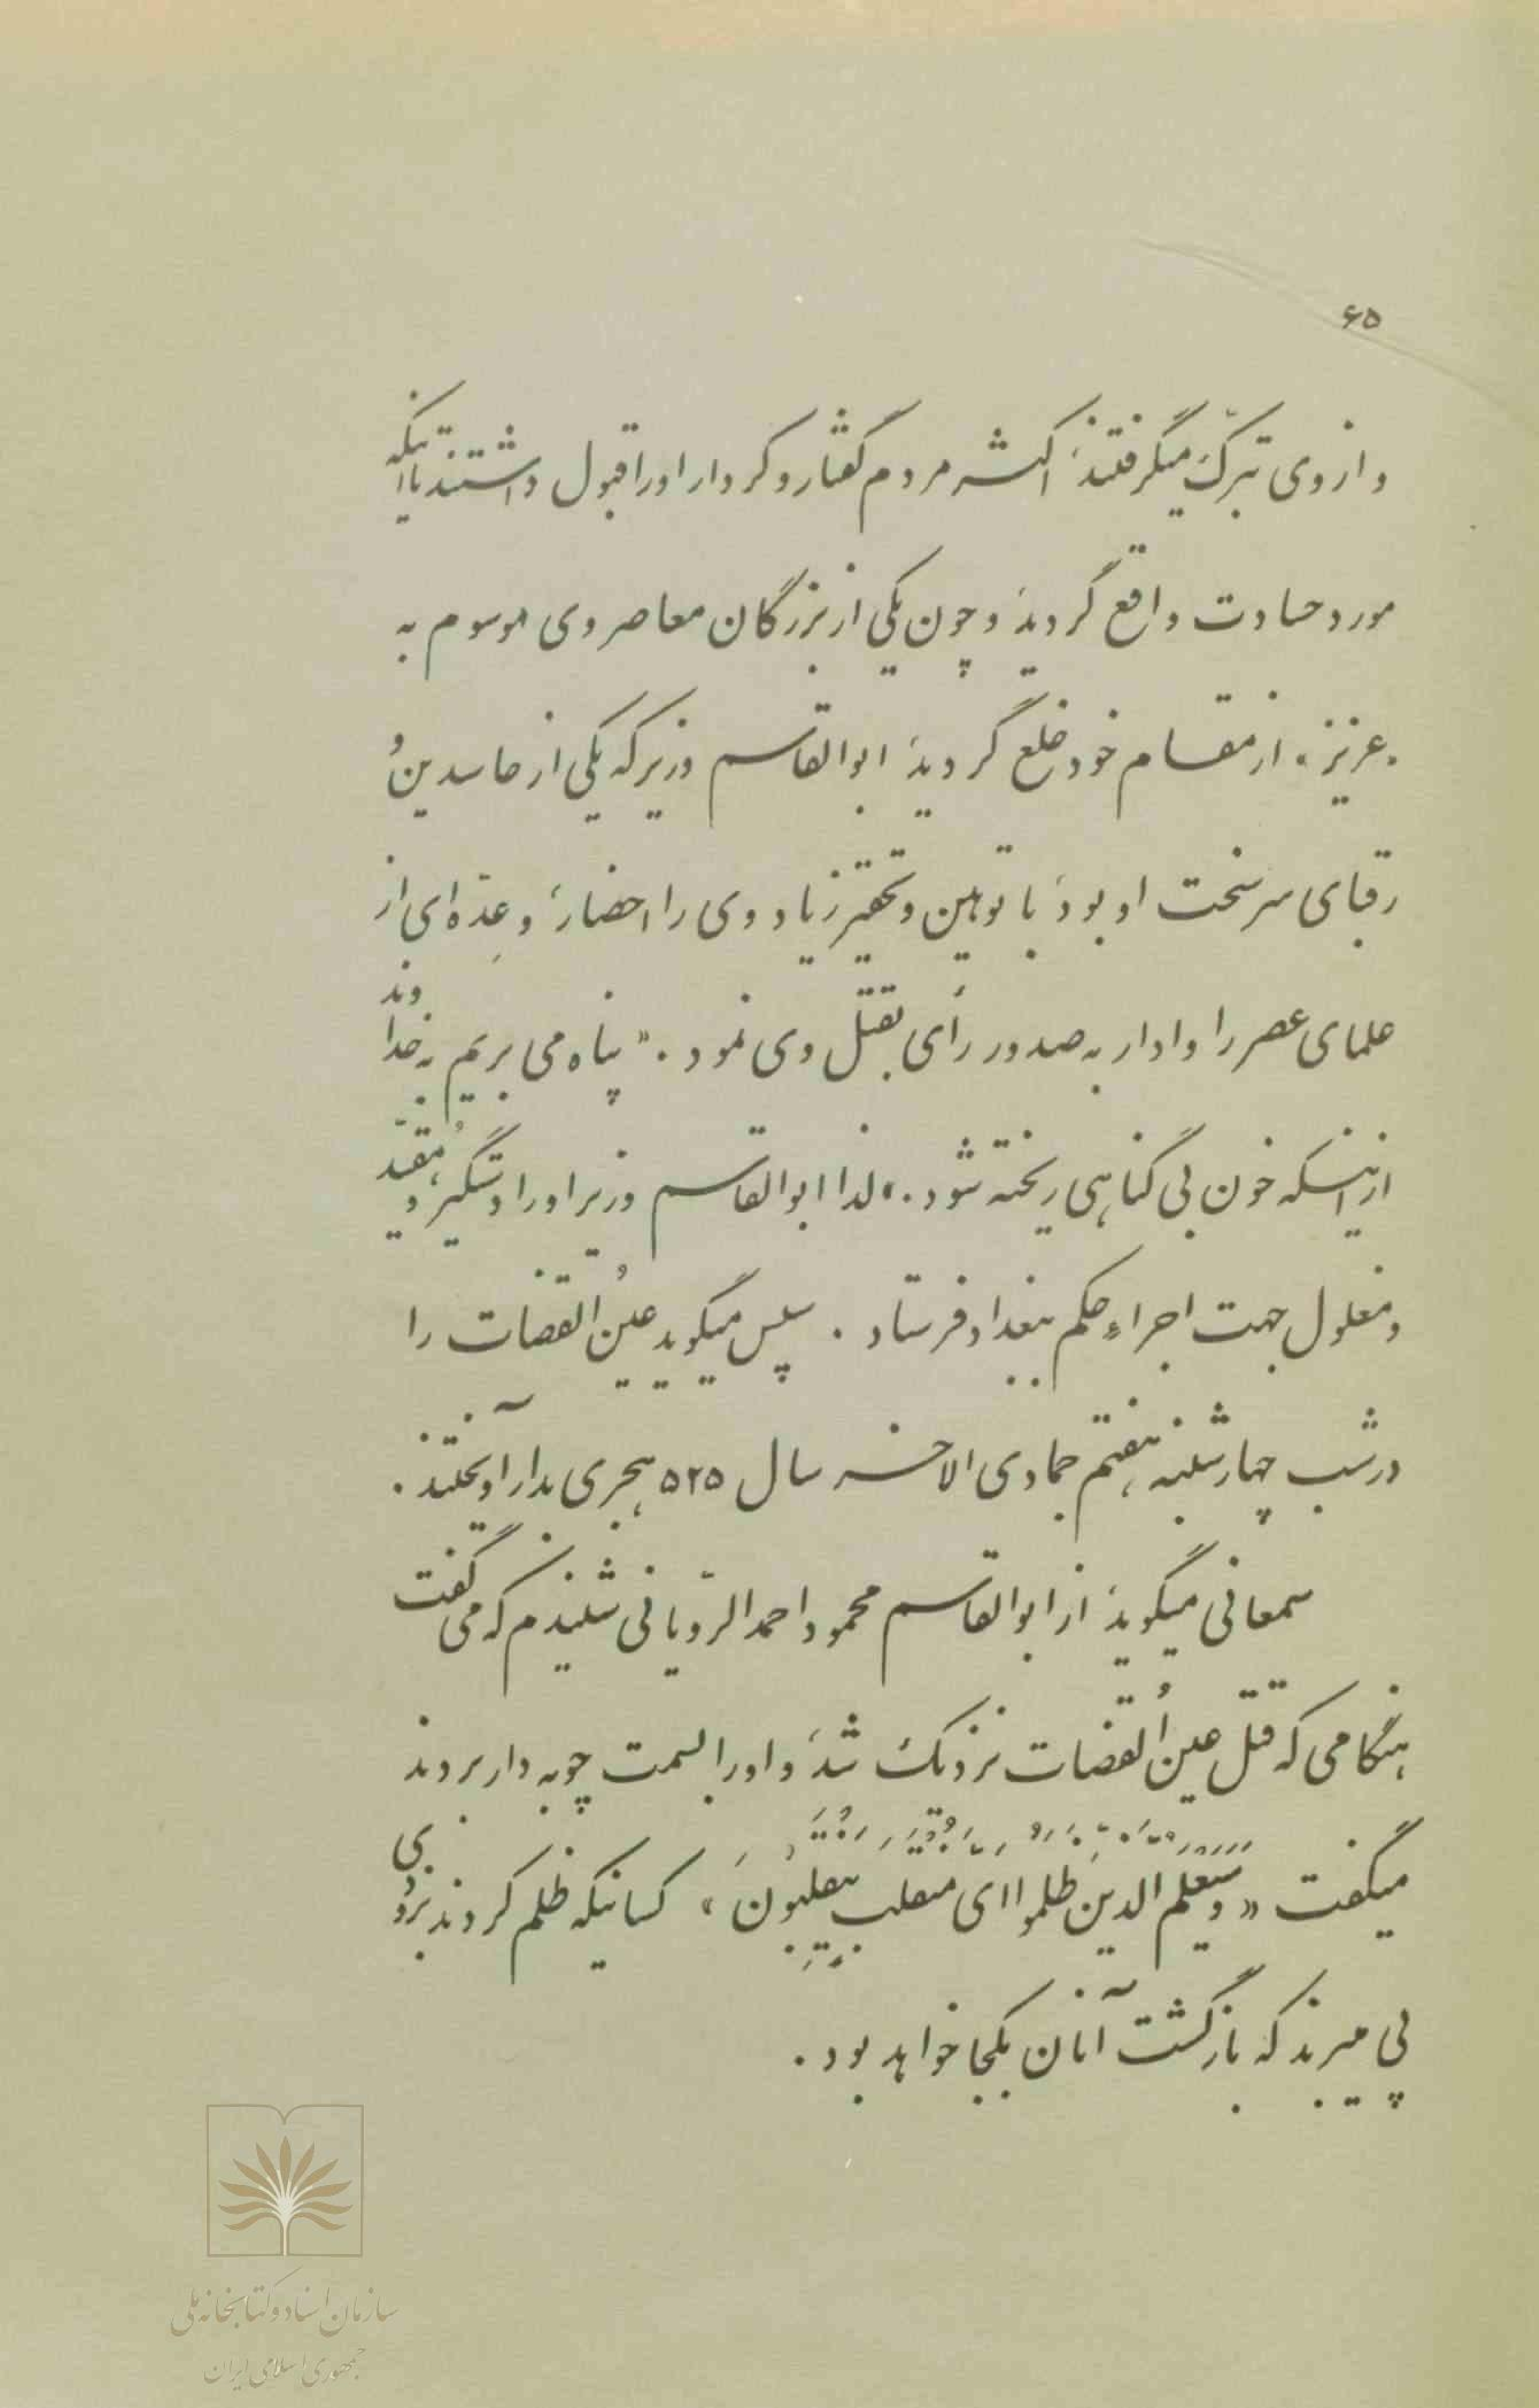 ۶۵
و از وی تبرّک میگرفتند، اکثر مردم گفتار و کردار او را قبول داشتند تا اینکه
مورد حسادت واقع گردید، و چون یکی از بزرگان معاصر وی موسوم به
«عزیز» از مقام خود خلع گردید، ابوالقاسم وزیر که یکی از حاسدین و
رقبای سرسخت او بود، با توهین و تحقیر زیاد وی را احضار، و عدّه‌ای از
علمای عصر را وادار به صدور رأی بقتل وی نمود. «پناه می بریم به خداوند
از اینکه خون بی گناهی ریخته شود.» لذا ابوالقاسم وزیر او را دستگیر و مُقیّد
و مغلول جهت اجراءِ حکم ببغداد فرستاد. سپس میگوید عینُ القضات را
در شب چهارشنبه، هفتم جمادی الاخر سال ۵۲۵ هجری بدار آویختند.
سمعانی میگوید، از ابوالقاسم محمود احمد الرّویانی شنیدم که می گفت
هنگامی که قتل عینُ القضات نزدیک شد، و او را بسمت چوبه دار بردند
میگفت «وَسَیَعْلَمُ الَّذینَ ظَلَمُوا اَیَّ مُنْقَلَبٍ یَنْقَلِبُونَ» کسانیکه ظلم کردند بزودی
پی میبرند که بازگشت آنان بکجا خواهد بود.
سازمان اسناد و کتابخانه ملی
جمهوری اسلامی ایران